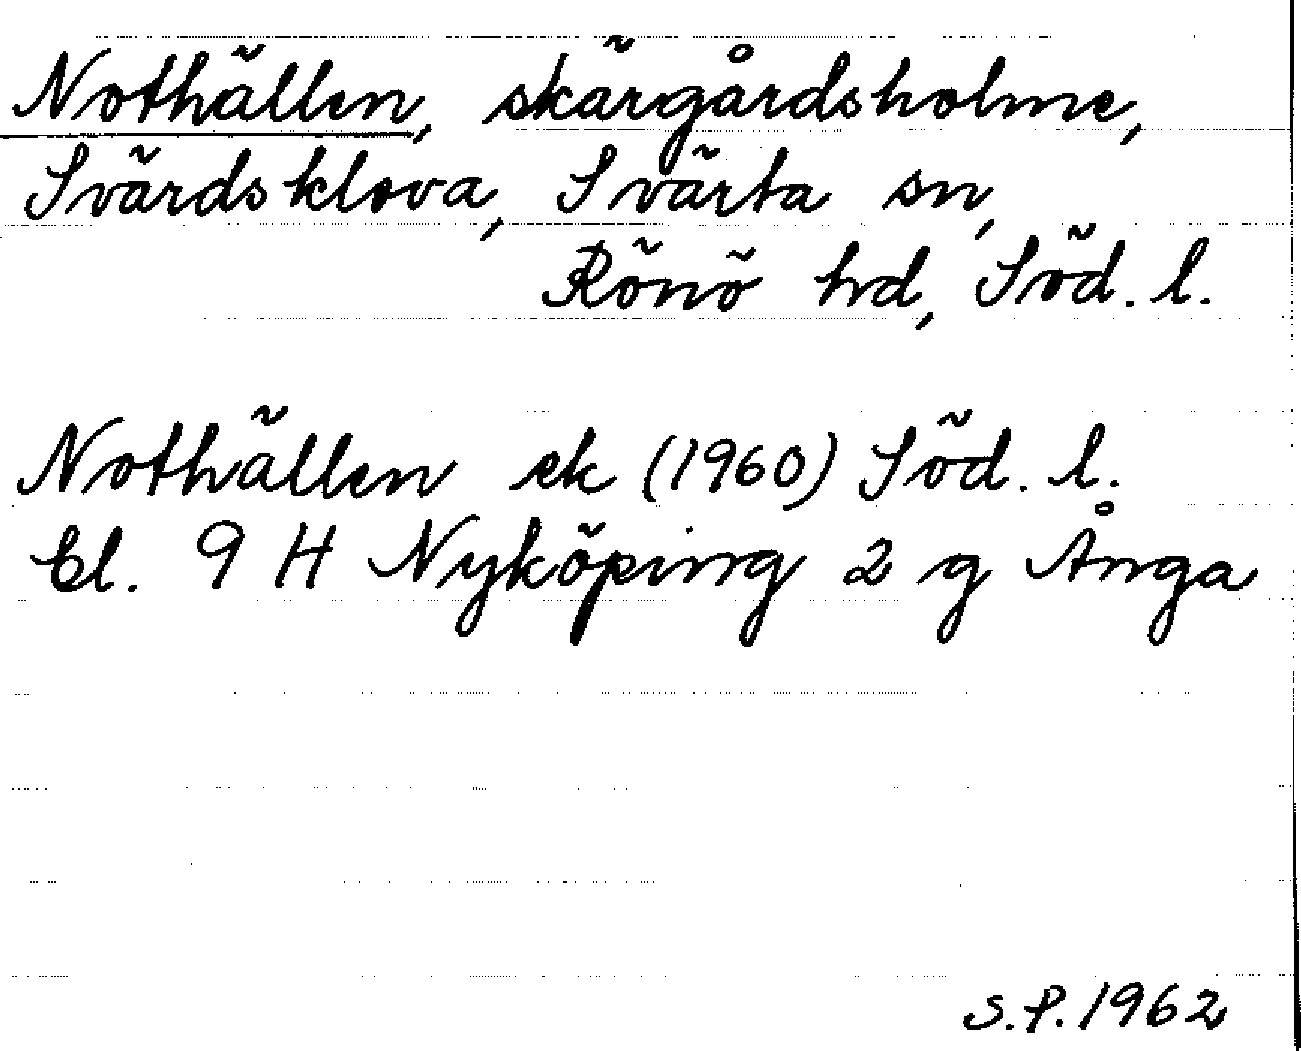 Nothällen, skärgårdsholme,
Svärdsklova, Svärta sn,
Rönö hd, Söd. l.
Nothällen ek (1960) Söd. l.
bl. 9 H Nyköping 2 g Ånga
S.P. 1962